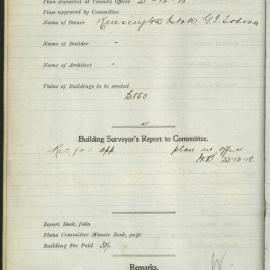 Plan deposited at Council Offices 21-12-18
Plan approved by Committee
Name of Owner Kensington Estate G.
Name of Builder "
Name of Architect "
Value of Buildings to be erected
£850
Building Surveyor's Report to Committee.
Rec for app plan in office
23-12-18
Report Book, folio
Plans Committee Minute Book, page
Building Fee Paid
Remarks.